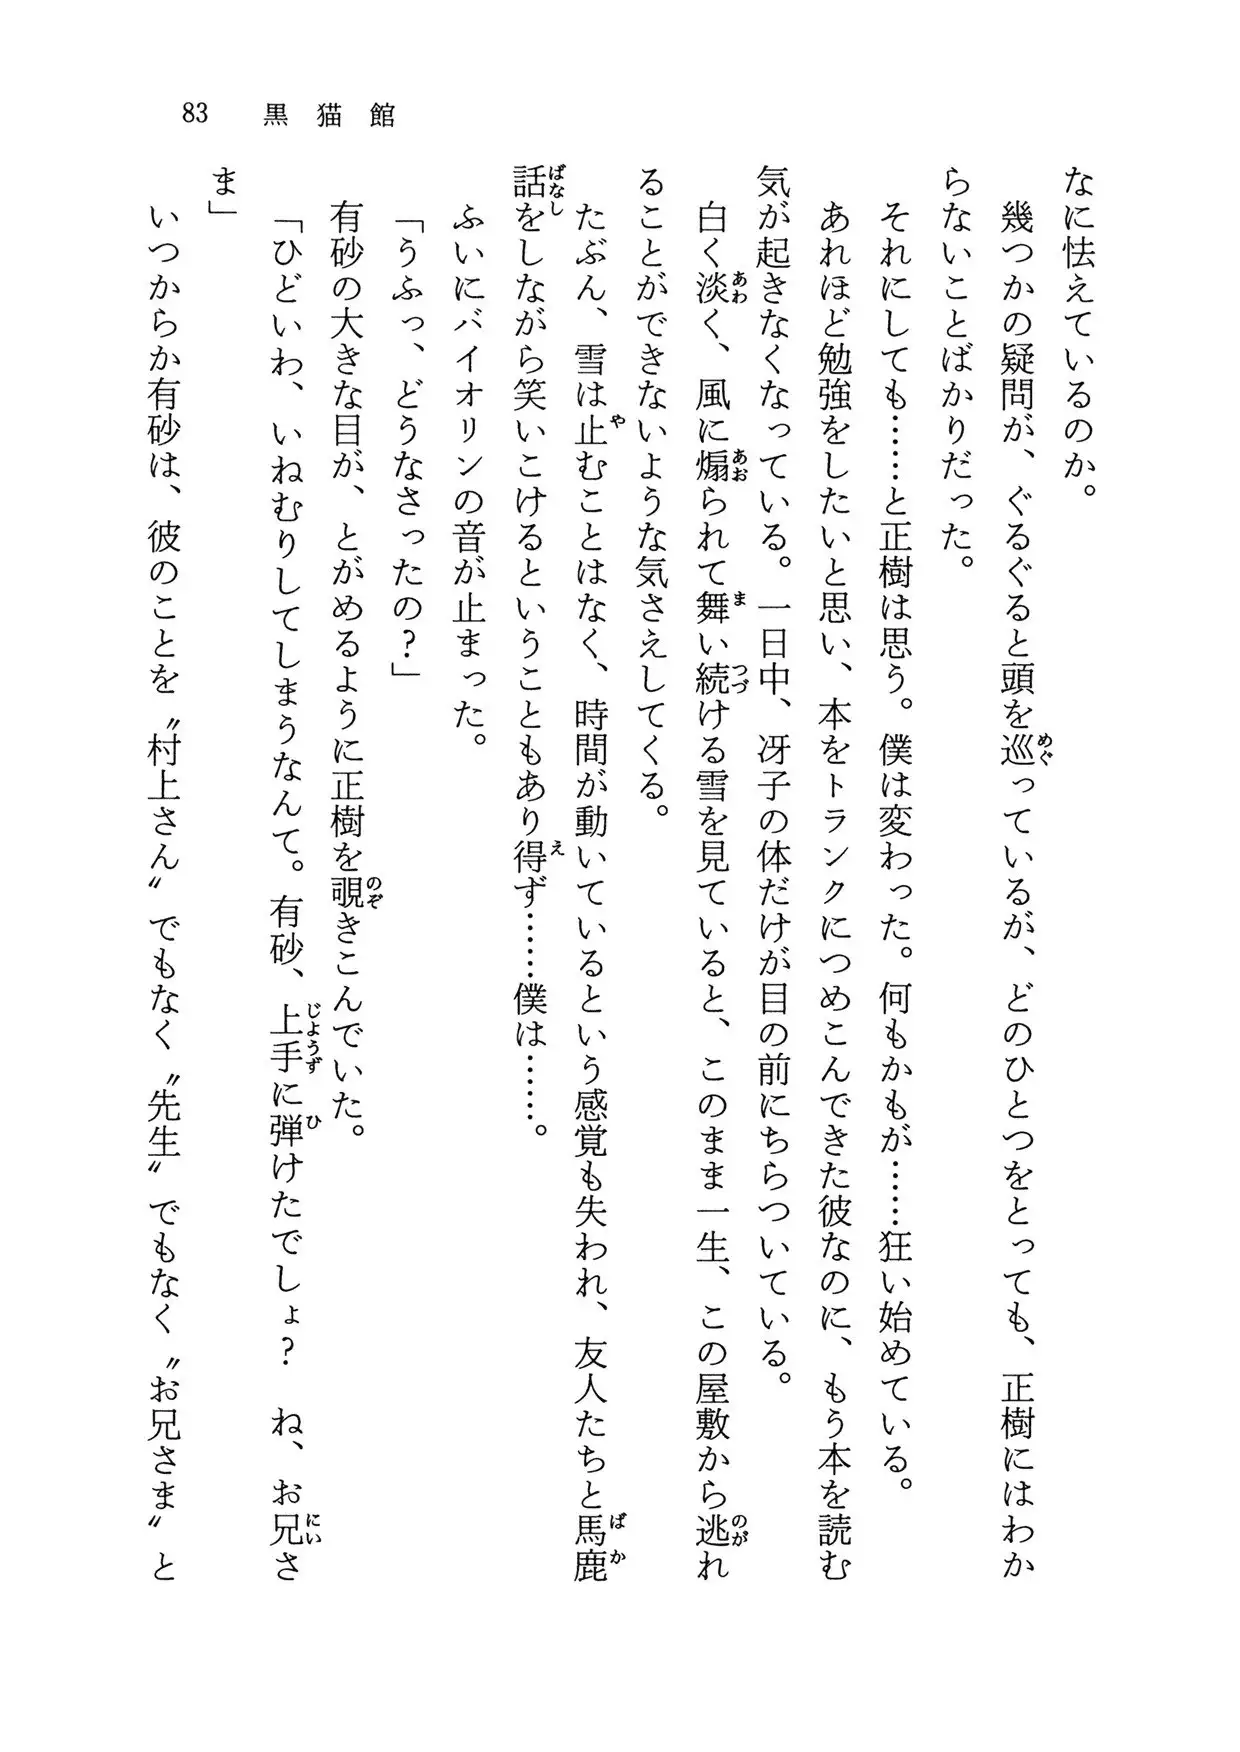 83 黒猫館
なに怯えているのか。
幾つかの疑問が、ぐるぐると頭を巡っているが、どのひとつをとっても、正樹にはわか
らないことばかりだった。
それにしても……と正樹は思う。僕は変わった。何もかもが……狂い始めている。
あれほど勉強をしたいと思い、本をトランクにつめこんできた彼なのに、もう本を読む
気が起きなくなっている。一日中、冴子の体だけが目の前にちらついている。
白く淡く、風に煽られて舞い続ける雪を見ていると、このまま一生、この屋敷から逃れ
ることができないような気さえしてくる。
たぶん、雪は止むことはなく、時間が動いているという感覚も失われ、友人たちと馬鹿
話をしながら笑いこけるということもあり得ず……僕は……。
ふいにバイオリンの音が止まった。
「うふっ、どうなさったの？」
有砂の大きな目が、とがめるように正樹を覗きこんでいた。
「ひどいわ、いねむりしてしまうなんて。有砂、上手に弾けたでしょ？　ね、お兄さ
ま」
いつからか有砂は、彼のことを〝村上さん〟でもなく〝先生〟でもなく〝お兄さま〟と